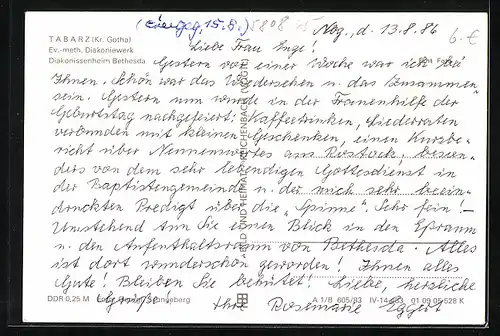 (eingeg. 15.8.) 8808 Nog., d. 13.8.86 6.-€
TABARZ (Kr. Gotha)
Ev.-meth. Diakoniewerk
Diakonissenheim Bethesda
Liebe Frau Inge!
Gestern vor einer Woche war ich bei
Ihnen. Schön war das Wiedersehen u. das Zusammen-
sein. Gestern nun wurde in der Frauenhilfe der
Geburtstag nachgefeiert: Kaffeetrinken, Liederraten
verbunden mit kleinen Geschenken, einen Kurzbe-
richt über Nennenswertes aus Rostock, beson-
ders von dem sehr lebendigen Gottesdienst in
der Baptistengemeinde u. der mich sehr beein-
druckten Predigt über die „Spinne". Sehr fein! –
Umstehend tun Sie einen Blick in den Eßraum
u. den Aufenthaltsraum von Bethesda. Alles
ist dort wunderschön geworden! Ihnen alles
Gute! Bleiben Sie behütet! Liebe, herzliche
Grüße Ihre Rosemarie Eggert
BILD UND HEIMAT REICHENBACH (VOGTL)
DDR 0,25 M
A 1/B 605/83 IV-14-483 01 09 05 528 K